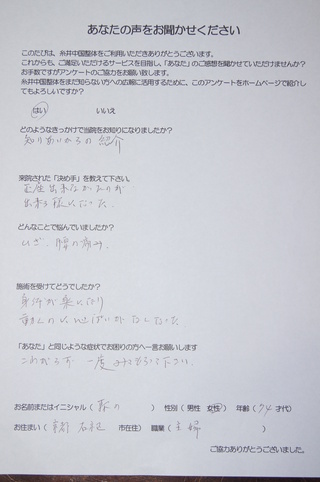 あなたの声をお聞かせください
このたびは、糸井中国整体をご利用いただきありがとうございます。
これからも、ご満足いただけるサービスを目指し、「あなた」のご感想を聞かせていただけませんか?
お手数ですがアンケートのご協力をお願い致します。
糸井中国整体をまだ知らない方への広報に活用するために、このアンケートをホームページで紹介し
てもよろしいですか?
はい いいえ
どのようなきっかけで当院をお知りになりましたか?
知り合いからの紹介
来院された「決め手」を教えて下さい。
正座出来なかったのが
出来る様になった。
どんなことで悩んでいましたか?
ひざ、腰の痛み。
施術を受けてどうでしたか?
身体が楽になり
「あなた」と同じような症状でお困りの方へ一言お願いします
一度
下さい。
お名前またはイニシャル ( ) 性別 ( 男性 女性 ) 年齢 ( 才代)
お住まい ( 市在住) 職業 ( 主婦 )
ご協力ありがとうございました。